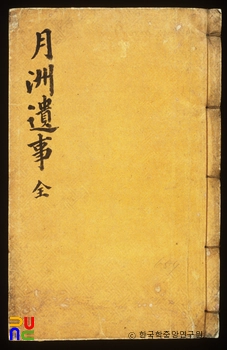 月洲遺事 全
© 한국학중앙연구원